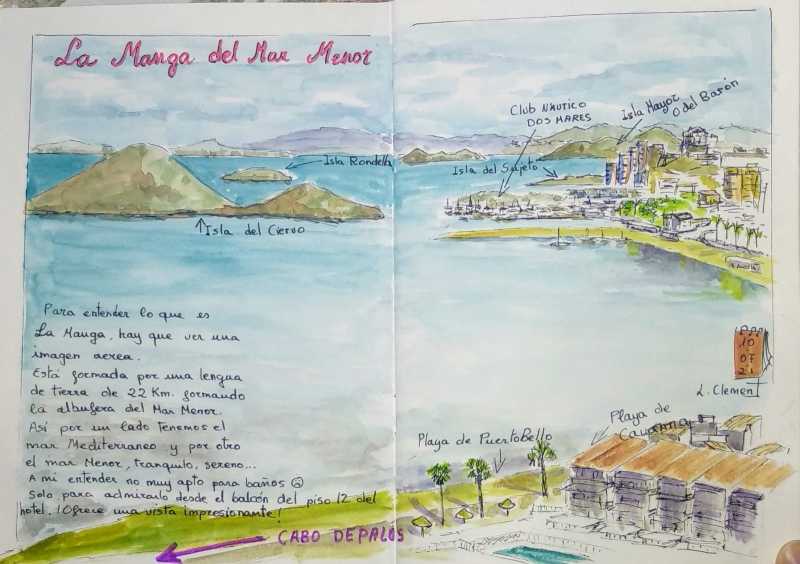 La Manga del Mar Menor
Club NAUTICO
DOS MARES
Isla Mayor
O del Barón
Isla Rondella
Isla del Sujeto
Isla del Ciervo
Para entender lo que es
La Manga, hay que ver una
imagen aerea.
Está formada por una lengua
de tierra de 22 Km. formando
la albufera del Mar Menor.
Así por un lado Tenemos el
mar Mediterraneo y por otro
el mar Menor, tranquilo, sereno...
A mi entender no muy apto para baños ☹
Solo para admirarlo desde el balcón del piso 12 del
hotel. ¡Ofrece una vista impresionante!
10
07
21
L. Clement
Playa de PuertoBello
Playa de
Cavanna
CABO DE PALOS